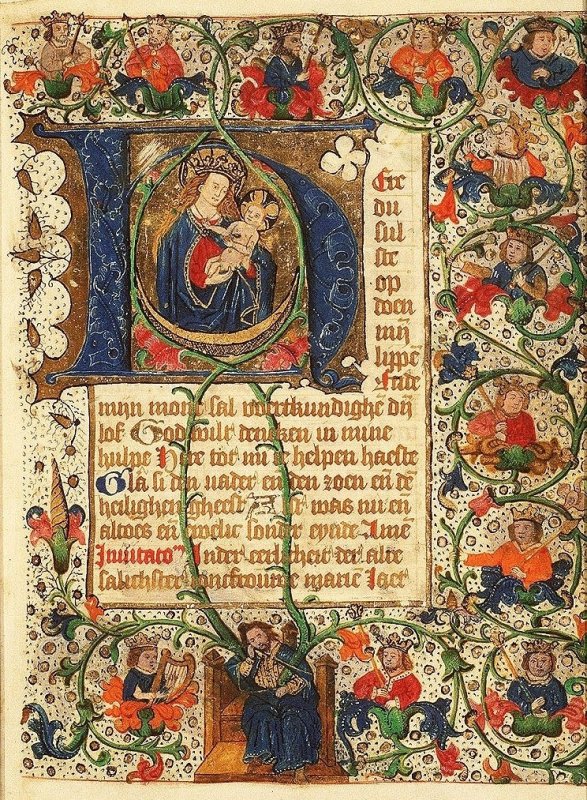 H Ere
du
sul
ste
op
doen
mijn
lippē
Ende
mijn mont sal voertkundighē dij
lof God wilt dencken in mine
hulpe Here tot mi te helpen haeste
Glā si den uader en den zoen eñ dē
heilighen gheest Alst was nu en
altoes en ewelic sonder eynde Amē
Inuitaco In der eerlicheit der alre
salichster ioncfrouwe marie Laet